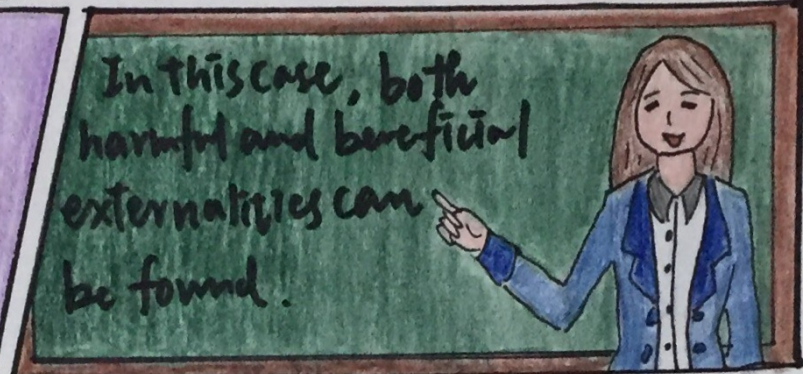 In this case, both
harmful and beneficial
externalities can
be found.